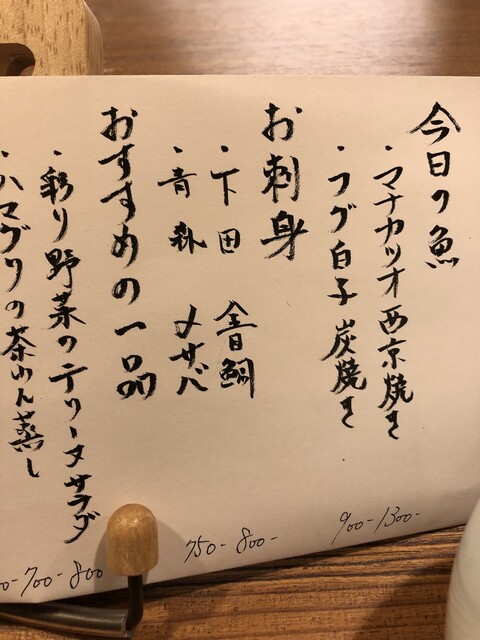 今日の魚
・マナカツオ西京焼き
・フグ白子 炭焼き
お刺身
・下田 金目鯛
・青森 〆サバ
おすすめの一品
・彩り野菜のテリーヌサラダ
・ハマグリの茶わん蒸し
900- 1300-
750- 800-
700- 800